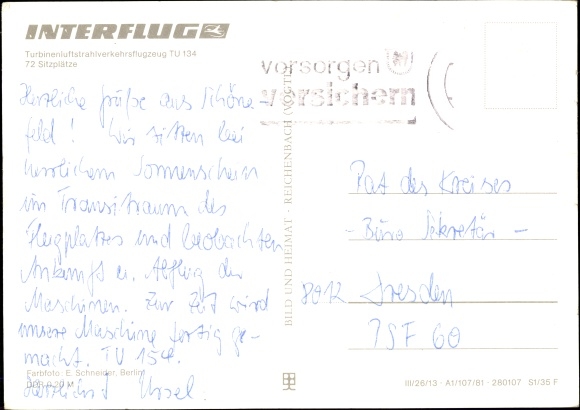 INTERFLUG
Turbinenluftstrahlverkehrsflugzeug TU 134
72 Sitzplätze
vorsorgen
versichern
Herzliche Grüße aus Schöne-
feld! Wir sitzen bei
herrlichem Sonnenschein
im Transitraum des
Flugplatzes und beobachten
Ankunft u. Abflug der
Maschinen. Zur Zeit wird
unsere Maschine fertig ge-
macht. TU 154.
Herzlichst Ursel.
Farbfoto: E. Schneider, Berlin
BILD UND HEIMAT · REICHENBACH (VOGTL)
Rat des Kreises
- Büro Sekretär -
8012 Dresden
PSF 60
III/26/13 · A1/107/81 · 280107 S1/35 F